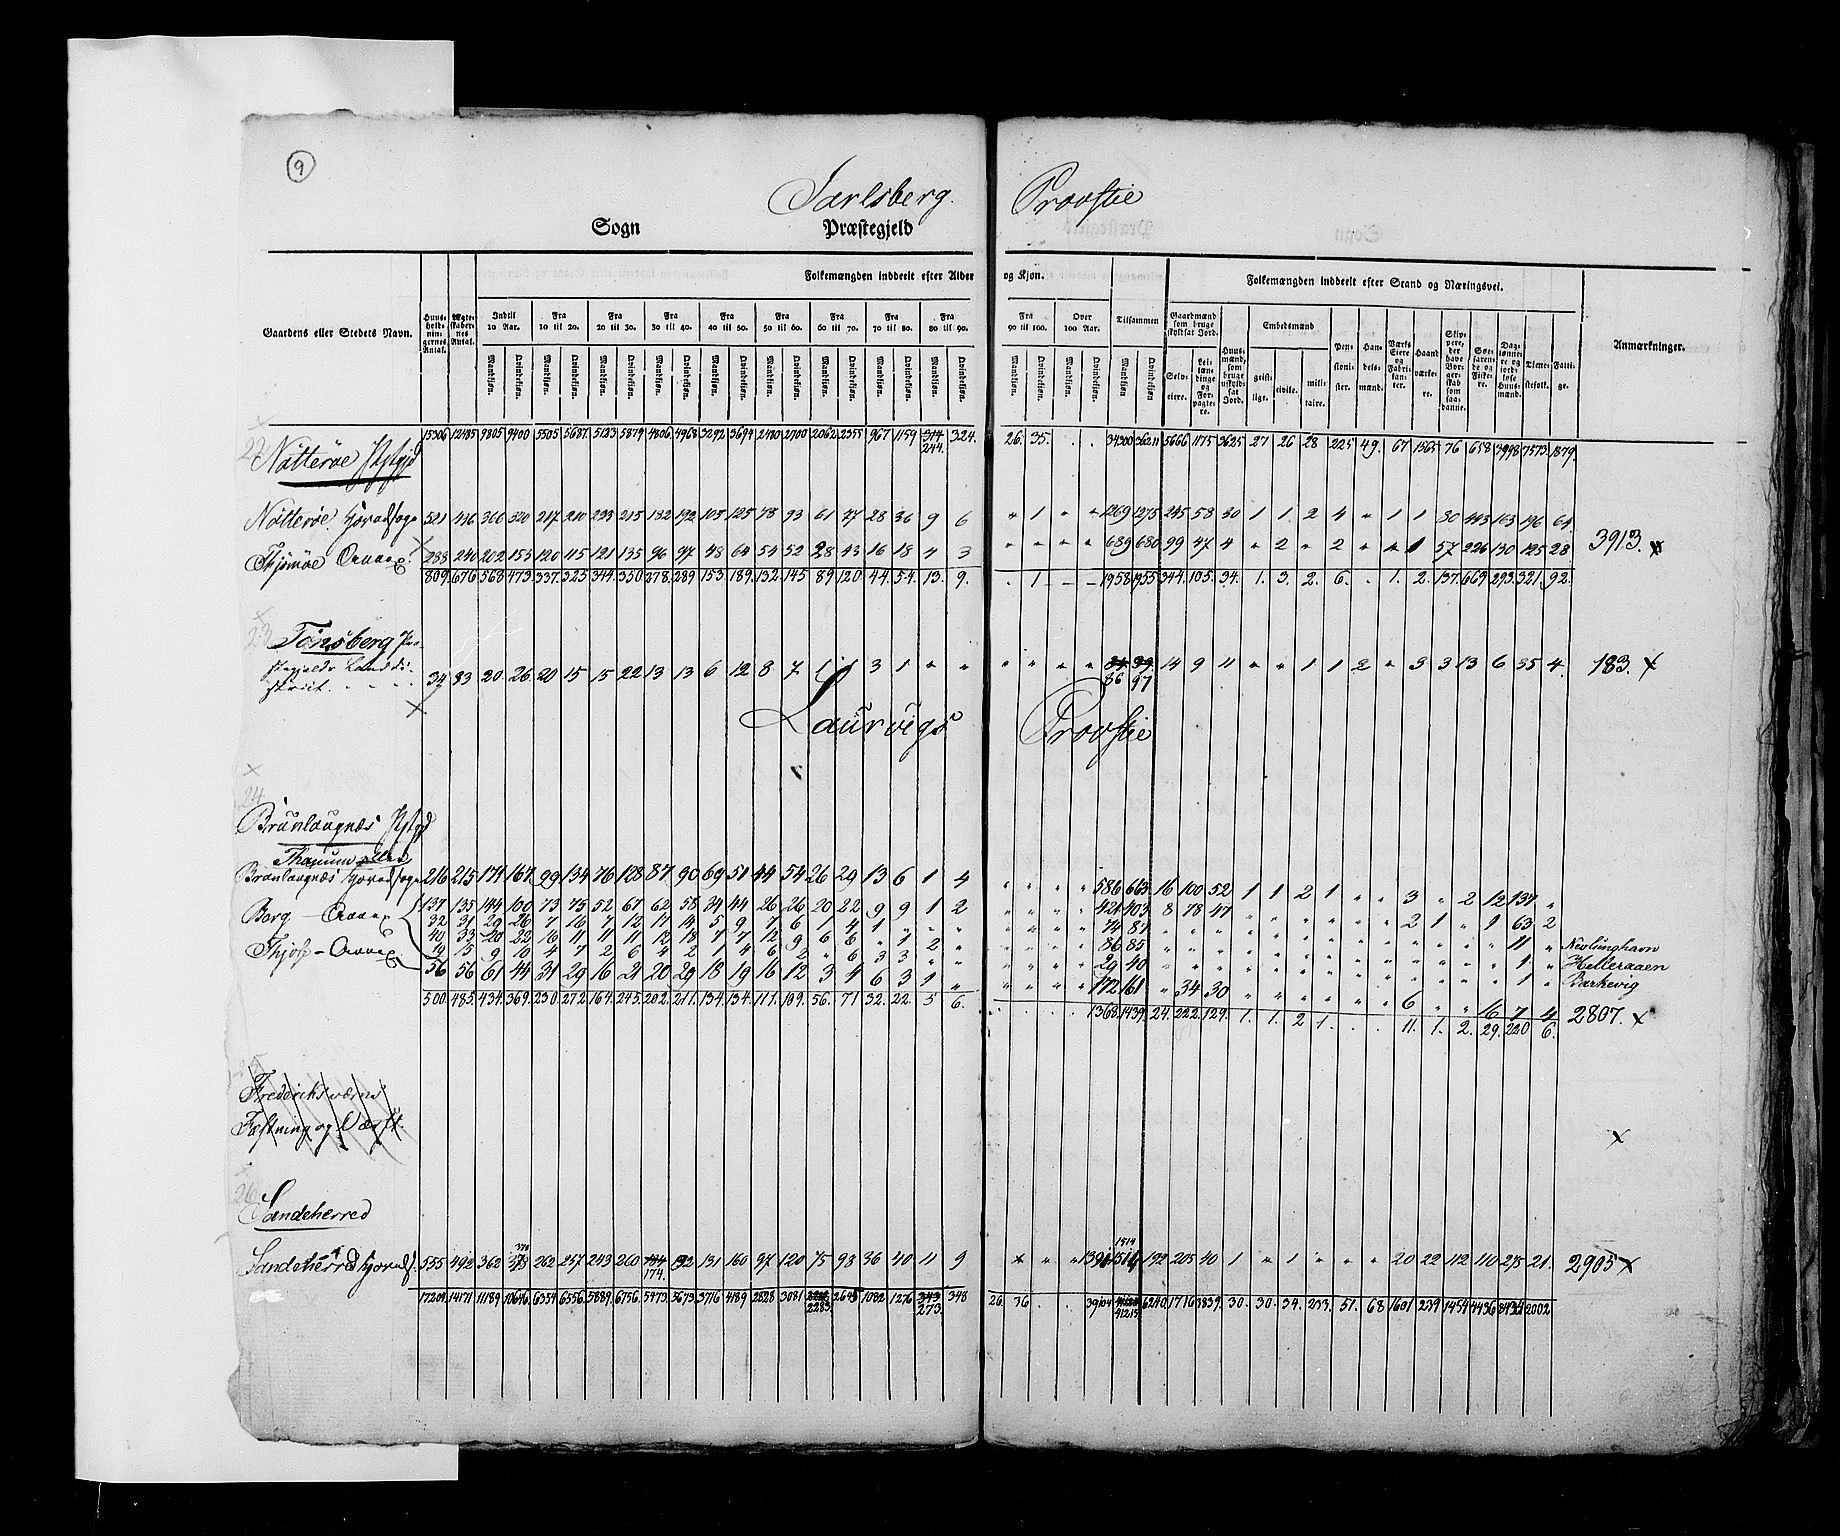 9
Jarlsberg. Provstie
Sogn Præstegjeld
Gaardens eller Stedets Navn. Huusholdningernes Antal. Ægteskabernes Antal. Folkemængden inddeelt efter Alder og Kjøn. Tilsammen Folkemængden inddeelt efter Stand og Næringsvei. Anmærkninger.
Indtil 10 Aar. Fra 10 til 20. Fra 20 til 30. Fra 30 til 40. Fra 40 til 50. Fra 50 til 60. Fra 60 til 70. Fra 70 til 80. Fra 80 til 90. Fra 90 til 100. Over 100 Aar.
Gaardmænd som bruge skyldsat Jord. Huusmænd, som bruge uskyldsat Jord. Embedsmænd Pensionister. Handelsmænd. Værks Eiere og Fabrikanter. Haandværkere. Skippere, der have Borgerskab som saadanne. Søefarende og Fiskere. Daglønnere og jordløse Huusmænd. Tjenestefolk. Fattige.
Selveiere. Leilændinge og Forpagtere. geistlige. civile. militaire.
Mandkjøn. Qvindekjøn.
15306 12485 9805 9400 5505 5687. 5123 5879 4806 4968 3292 3694 2480 2700 2062 2355 967 1159 314 324. 26. 35. . . 34300 36211 5666 1175 3625 27 26 28 225 49. 67 1565 76 658 3998 7573. 1879.
244.
22
Nøtterøe Pstgjd
Nøtterøe Hovedsogn 521 436 366 320 217 210 223 215 182 192 105 125 78 93 61 77 28 36 9 6 " 1 " " 1269 1275 245 58 30 1 1 2 4 " 1 1 80 443 163 196 64
Thjømøe Annex 288 240 202 153 120 115 121 135 96 97 48 64 54 52 28 43 16 18 4 3 " " " " 689 680 99 47 4 " 2 " 2 " " 1 57 226 130 125 28 3913. x
809. 676 568 473. 337. 325. 344. 350. 278. 289. 153. 189. 132. 145. 89. 120. 44. 54. 13. 9. . 1. – – 1958 1955 344. 105. 34. 1. 3. 2. 6. . 1. 2. 137. 669. 293. 321. 92.
23
Tønsberg Præ-
stegjelds Landdi-
strict. . . . . 34 33 20 26 20 15 15 22 13 13 6 12 8 7 1 1 3 1 " " " " " " 84 99 14 9 11 " " 1 1 2 " 3 3 13 6 35 4. 183. x
86 97
Laurvigs Provstie
24
Brunlaugnæs Pstgjd
Thanum eller
Brunlaugnæs Hovedsogn 216 215 179 167 99 134 76 128 87 90 69 51 44 54 26 29 13 6 1 4 " " " " 586 663. 16 100 52 1 1 2 1 " " 3 " 2 12 137 "
Berg – Annex 137 135 144 100 73 75 52 67 62 58 34 44 26 26 20 22 9 9 1 2 " " " " 421 403. 8 78 47 " " " " " " 2 1 " 1 63 2
32 31 29 26 7 16 7 12 17 14 5 9 7 6 1 4 1 " " " " " " " 74 87 " " " " " " " " " " " " " 11 " Nevlunghavn
Thjøs – Annex 86 85 Helleraaen
29 40 Barkevig
56 56 61 44 31 29 16 21 20 29 18 19 16 12 3 4 6 3 1 " " " " " 172 161 " 34 30 " " " " " " 6 " " 16 7 4
500 485. 434. 369. 230. 272. 164. 245. 202. 211. 134. 134. 111. 109. 56. 71 32. 22. 5 6. . . . . 1368. 1439. 24. 222. 129. 1. 1. 2 1. . . 11. 1. 2. 29. 220 6. 2807. x
Frederiksværns
Fæstning og Værft. x
26
Sandeherred
Sandeherred Hovedf. 555 492 362 373 262 257 243 260 184 192 131 160 97 120 75 98 36 40 11 9 " " " 1391 1514 192 205 40 1 " 1 " " " 20 22 112 110 275 21. 2905 x
174.
17204. 14171 11189 10646. 6354 6556. 5889. 6756. 5473. 5673. 3716 4189. 2828. 3081 2283. 2645 1082. 1276 343 348 26. 36 . . 39104 41215 6240. 1716 3839. 30. 30. 34. 233. 51. 68 1601. 239 1454 4436 8434 2002.
273.